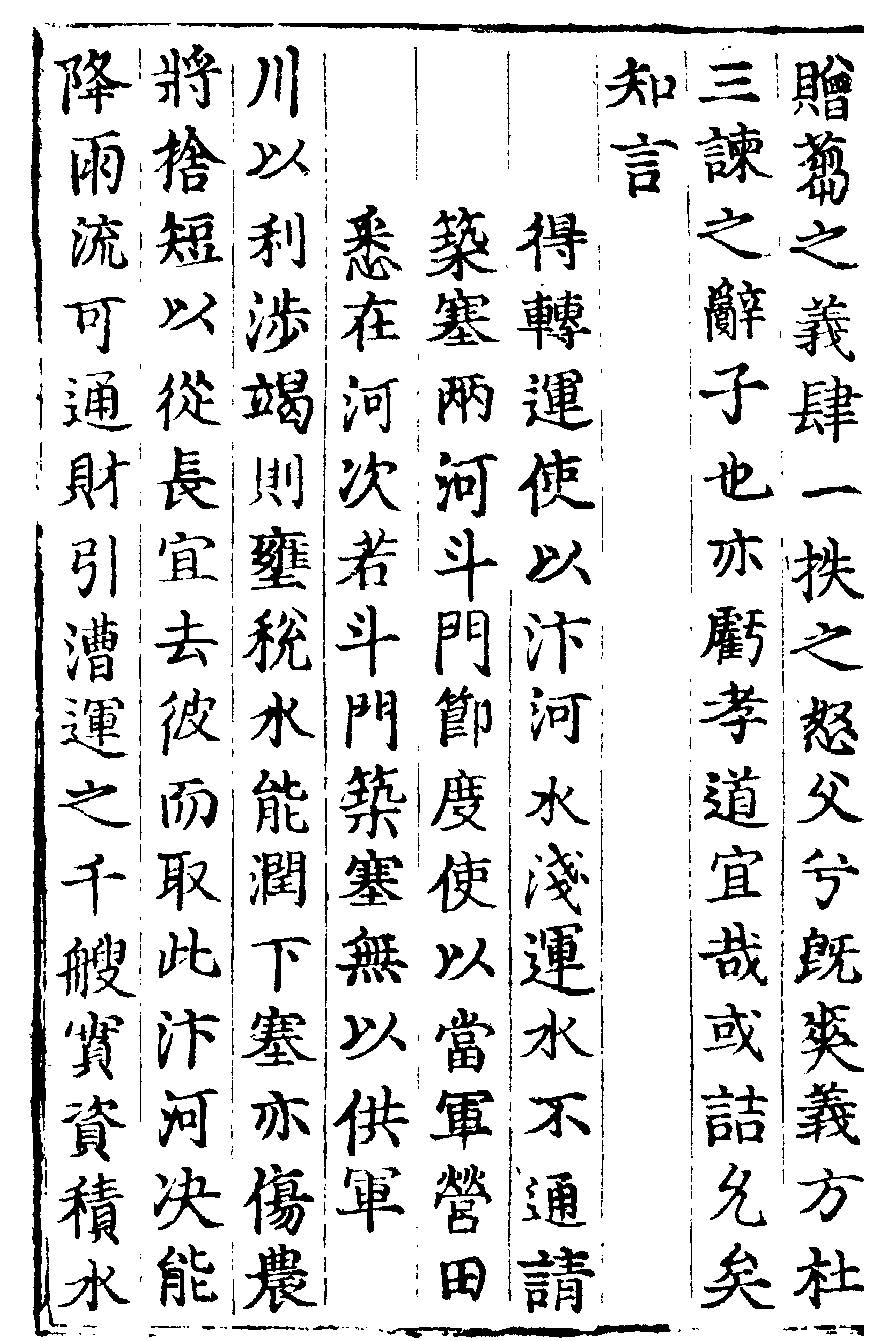 贈蒭之義肆一抶之怒父兮旣爽義方杜
三諫之辭子也亦虧孝道宜哉或詰允矣
知言
得轉運使以汴河水淺運水不通請
築塞兩河斗門節度使以當軍營田
悉在河次若斗門築塞無以供軍
川以利涉竭則壅稅水能潤下塞亦傷農
將捨短以從長宜去彼而取此汴河决能
降雨流可通財引漕運之千艘實資積水